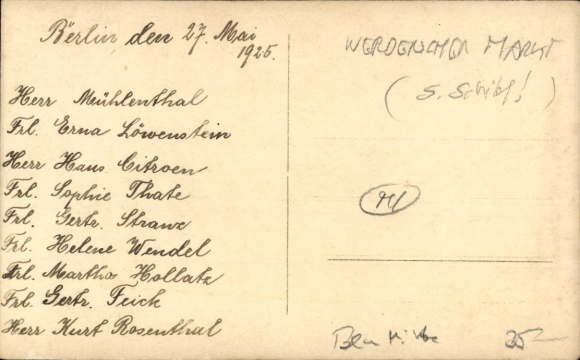 Berlin, den 27. Mai
1925.
Herr Mühlenthal
Frl. Erna Löwenstein
Herr Hans Citroen
Frl. Sophie Thate
Frl. Gertr. Stranz
Frl. Helene Wendel
Frl. Martha Hollatz
Frl. Gertr. Feick
Herr Kurt Rosenthal
WERDERSCHER MARKT
(s. Schild!)
Bln Mitte
35-